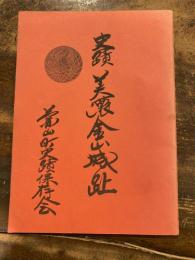 史蹟 美濃金山城趾
兼山町史蹟保存会